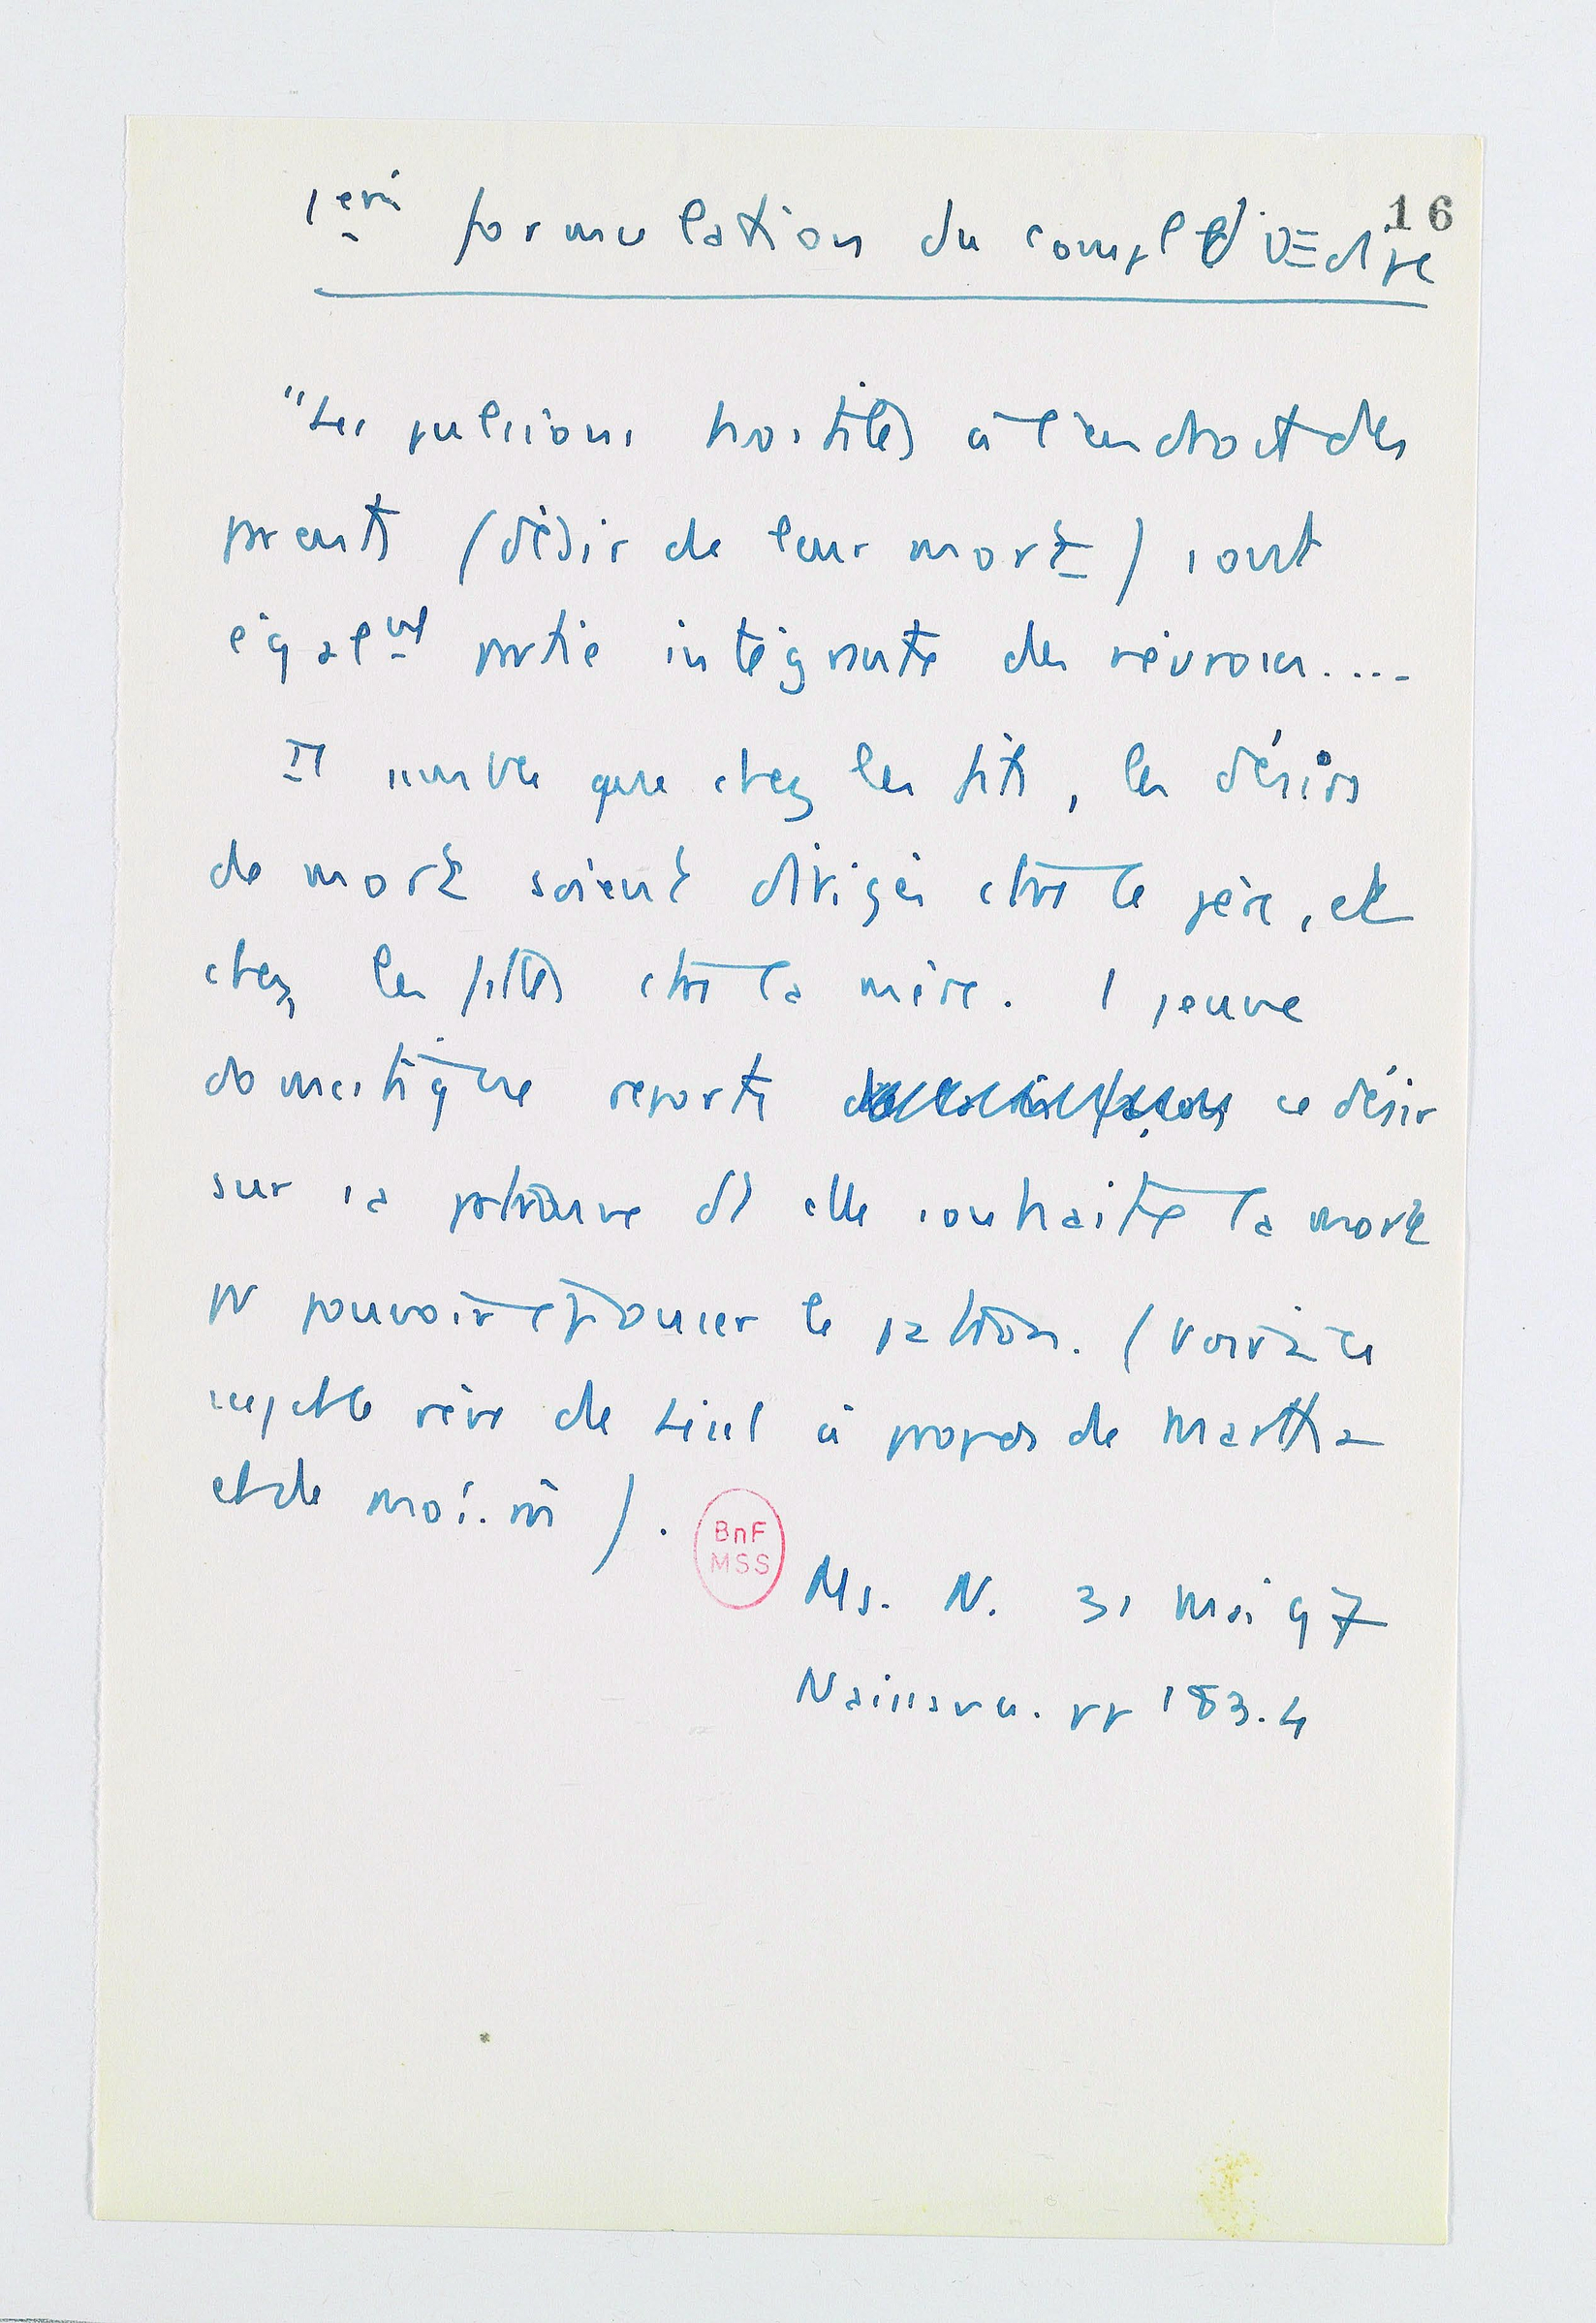 16
1ère formulation du compl d'OEdipe
"Les pulsions hostiles à l'endroit des
prents (désir de leur mort) sont
égalmt partie intégrante des névroses....
Il semble que chez les fils, les désirs
de mort soient dirigés ctre le père, et
chez les filles ctre la mère. 1 jeune
domestique reporte ce désir
sur sa patronne dt elle souhaite la mort
pr pouvoir épouser le patron. (voir à ce
sujet le rêve de Lisel à propos de Martha
et de moi-m̂).
BnF
MSS
Ms. N. 31 mai 97
Naissance. pp 183.4